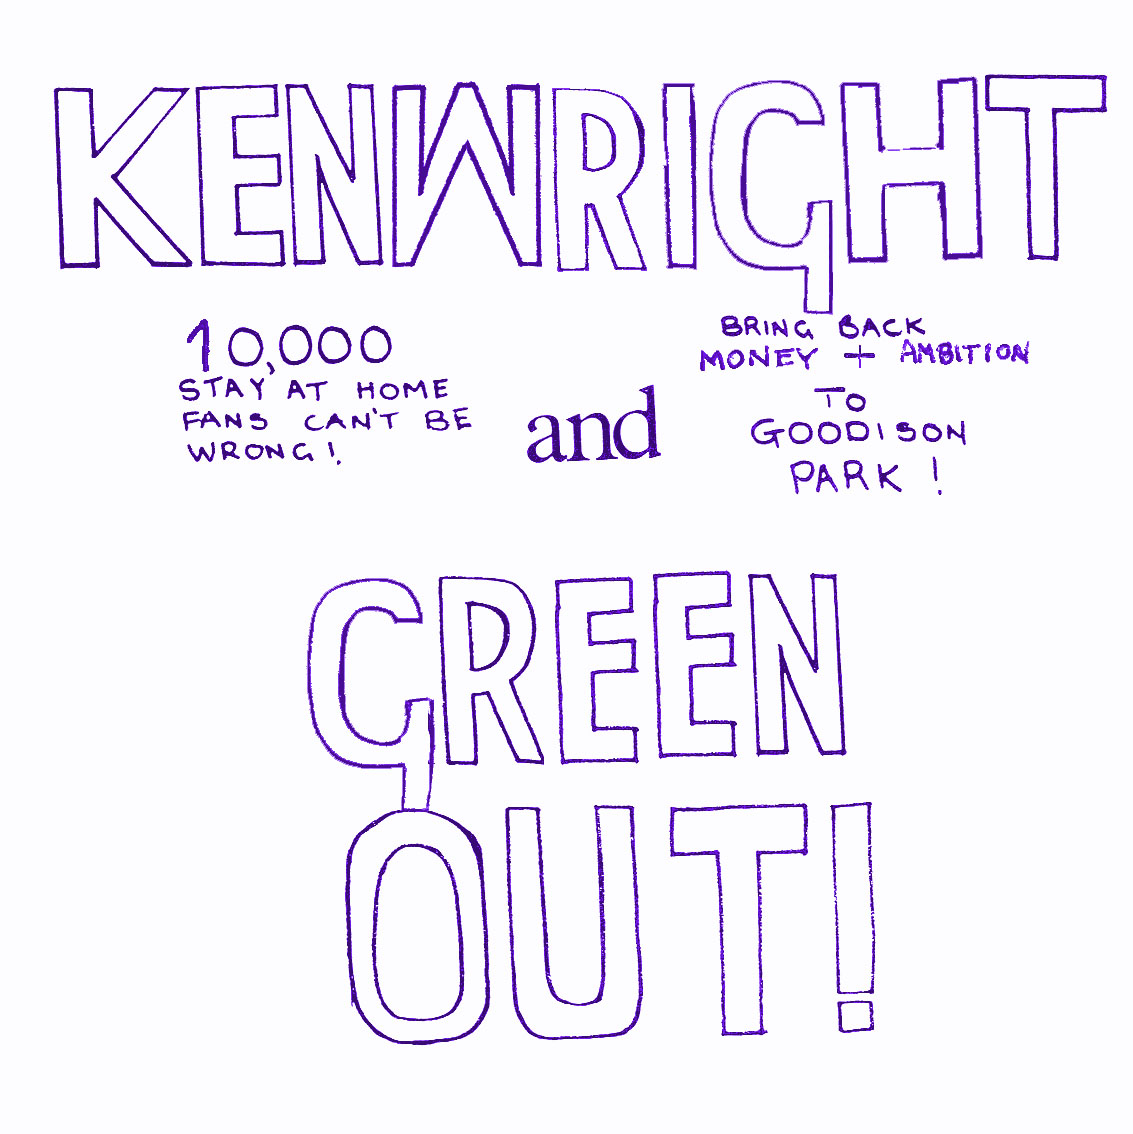 KENWRIGHT
10,000
STAY AT HOME
FANS CAN'T BE
WRONG!
and
BRING BACK
MONEY + AMBITION
TO
GOODISON
PARK!
GREEN
OUT!